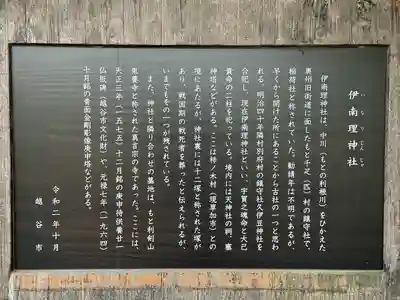 いなりじんじゃ
伊南理神社
伊南理神社は、中川(もとの利根川)をひかえた
奥州旧街道に面したもと千疋(疋)村の鎮守社で、
稲荷社と称されていた。勧請年は不明であるが、
早くから開けた所にあることから古社の一つと思わ
れる。明治四十年隣村別府村の鎮守社久伊豆神社を
合祀し、現在伊南理神社といい、宇賀之魂命と大己
貴命の二柱を祀っている。境内には天神社の祠、塞
神塔などがある。ここは柿ノ木村(現草加市)との
境にあたるが、神社裏には十二塚と称された塚が
あり、戦国期の戦死者を葬ったと伝えられるが、
いまでもその一つが残されている。
また、神社と隣り合わせの墓地は、もと利剣山
東養寺と称された真言宗の寺であった。ここには、
天正三年(一五七五)十二月銘の庚申待供養廿一
仏板碑(越谷市文化財)や、元禄七年(一六九四)
十月銘の青面金剛彫像庚申塔などがある。
令和二年十月
越谷市